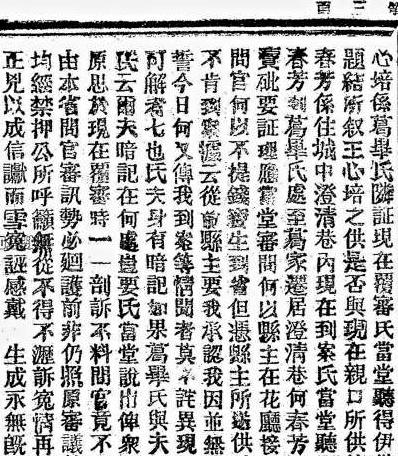 第三頁
心培係葛畢氏隣証現在覆審氏當堂聽得伊
題結所叙王心培之供是否與現在親口所供
春芳係住城中澄清巷內現在到案氏當堂聽
春芳到葛畢氏處至葛家遷居澄清巷何春芳
賣砒要証理應當堂審問何以縣主在花廳接
問官何以不提錢寶生到省但憑縣主所送供
不肯到案據云從前縣主要我承認我因並無
誓今日何又傳我到案等情聞者莫不詫異現
可解者七也氏夫身有暗記如果葛畢氏與夫
氏云爾夫暗記在何處豈要氏當堂說出俾衆
原思於現在覆審時一一剖訴不料問官竟不
由本省問官審訊勢必廻護前非仍照原審議
均經禁押公所呼籲無從不得不瀝訴冤情再
正兇以成信讞而雪冤誣感戴 生成永無旣